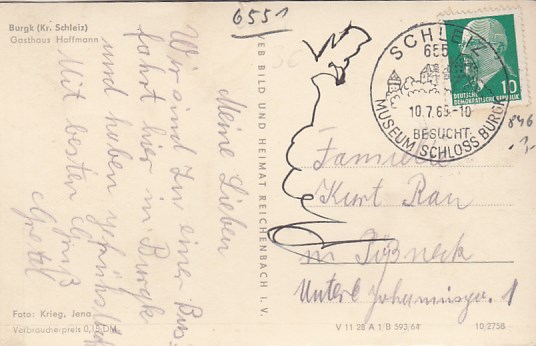 Burgk (Kr. Schleiz)
Gasthaus Hoffmann
6551
Meine Lieben
Wir sind zu einer Bus-
fahrt hier in Burgk
und haben
Mit besten Gruß
VEB BILD UND HEIMAT REICHENBACH I. V.
SCHLEIZ
655
10.7.65-10
BESUCHT
MUSEUM SCHLOSS BURGK
10
DEUTSCHE
DEMOKRATISCHE REPUBLIK
846
Familie
Kurt Rau
in Pößneck
1
Foto: Krieg, Jena
Verbraucherpreis 0,15 DM
V 11 28 A 1 B 593/64
10/2758